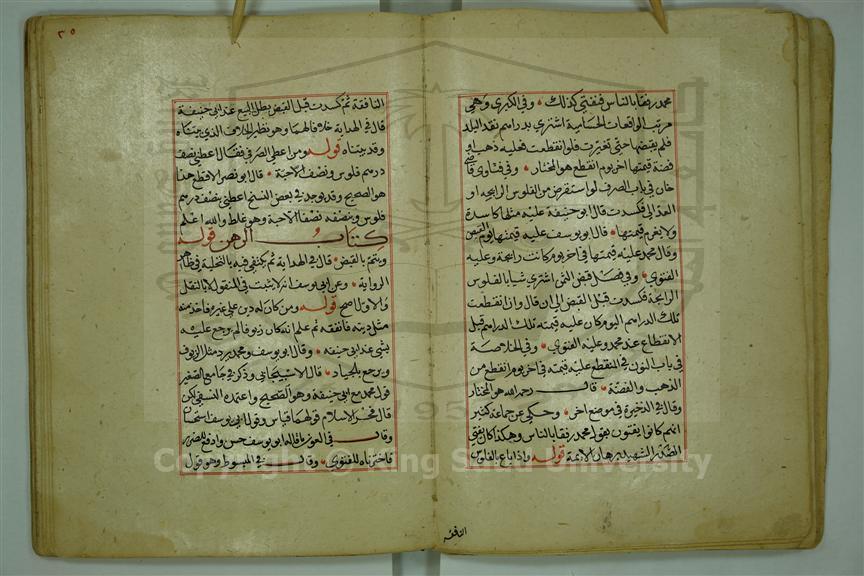 محمد رفقا بالناس فيفتي كذلك وفي الكبرى وهي
مرتب الواقعات الحسامية اشترى بدراهم نقد البلد
فلم يقبضها حتى تغيرت فلو انقطعت فعليه ذهب او
فضة قيمتها اخر يوم انقطع هو المختار وفي فتاوى قاضي
خان في باب الصرف لو استقرض من الفلوس الرايجة او
العدالى فكسدت قال ابو حنيفة عليه مثلها كاسدة
ولا يغرم قيمتها قال ابو يوسف عليه قيمتها يوم القبض
وقال محمد عليه قيمتها في اخر يوم كانت رايجة وعليه
الفتوى وفي هل قبض الثمن اشترى شيا بالفلوس
الرايجة فكسدت قبل القبض الى ان قال وان انقطعت
تلك الدراهم اليوم كان عليه قيمته تلك الدراهم قبل
الانقطاع عند محمد وعليه الفتوى وفي الخلاصة
في باب النون في المنقطع عليه قيمته في اخر يوم انقطع من
الذهب والفضة قال رحمه الله هو المختار
وقال في الذخيرة في موضع اخر وحكي عن جماعة كثير
انهم كانوا يفتون بقول محمد رفقا بالناس وهكذا كان يفتي
الصدر الشهيد برهان الايمة قوله واذا باع بالفلوس
النافقة
٣٥
النافقة ثم كسدت قبل القبض بطل البيع عند ابي حنيفة
قال في الهداية خلافا لهما وهو نظير الخلاف الذي بيناه
وقد بيناه قوله ومن اعطى الصرفي فقال اعطني بنصف
درهم فلوس ونصف الاحبة قال ابو نصر الاقطع هذا
هو الصحيح وقد يوجد في بعض النسخ اعطني بنصف درهم
فلوس وبنصفه نصفا الاحبة وهو غلط والله اعلم
كتاب الرهن قوله
ويتم بالقبض قال في الهداية ثم يكتفى فيه بالتخلية في ظاهر
الرواية وعن ابي يوسف انه لا يثبت في المنقول الا بالنقل
والاول اصح قوله ومن كان له دين على غيره فاخذ منه
مثل دينه فانفقه ثم علم انه كان زيوفا لم يرجع عليه
بشي عند ابي حنيفه وقال ابو يوسف ومحمد يرد مثل الزيوف
ويرجع بالجياد قال الاسبيجابي وذكر في جامع الصغير
قول محمد مع ابي حنيفة وهو الصحيح واعتمده النسفي لكن
قال فخر الاسلام قولهما قياس وقول ابي يوسف استحسان
وقال في العون ما قاله ابو يوسف حسن وادفع للضرر
فاخترناه للفتوى وقال في المبسوط وهو قول
Copyright © King Saud University